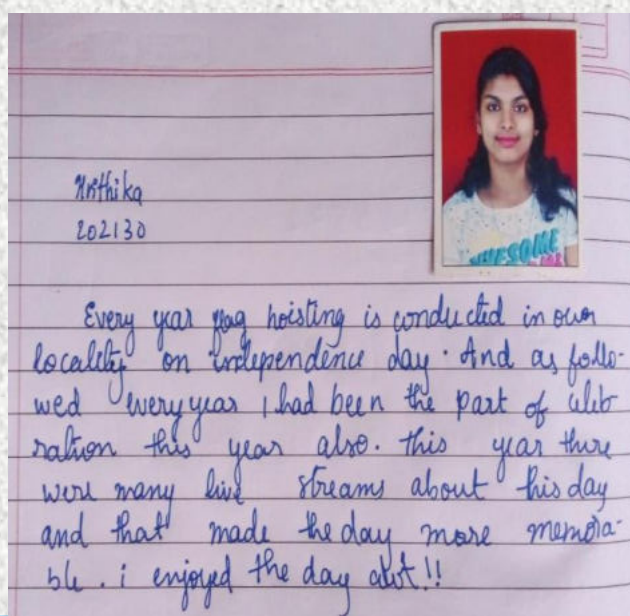 Hrithika
202130
AWESOME
Every year flag hoisting is conducted in our
locality on independence day. And as follo-
wed every year I had been the part of celeb
ration this year also. this year there
were many live streams about this day
and that made the day more memora-
ble. i enjoyed the day alot!!